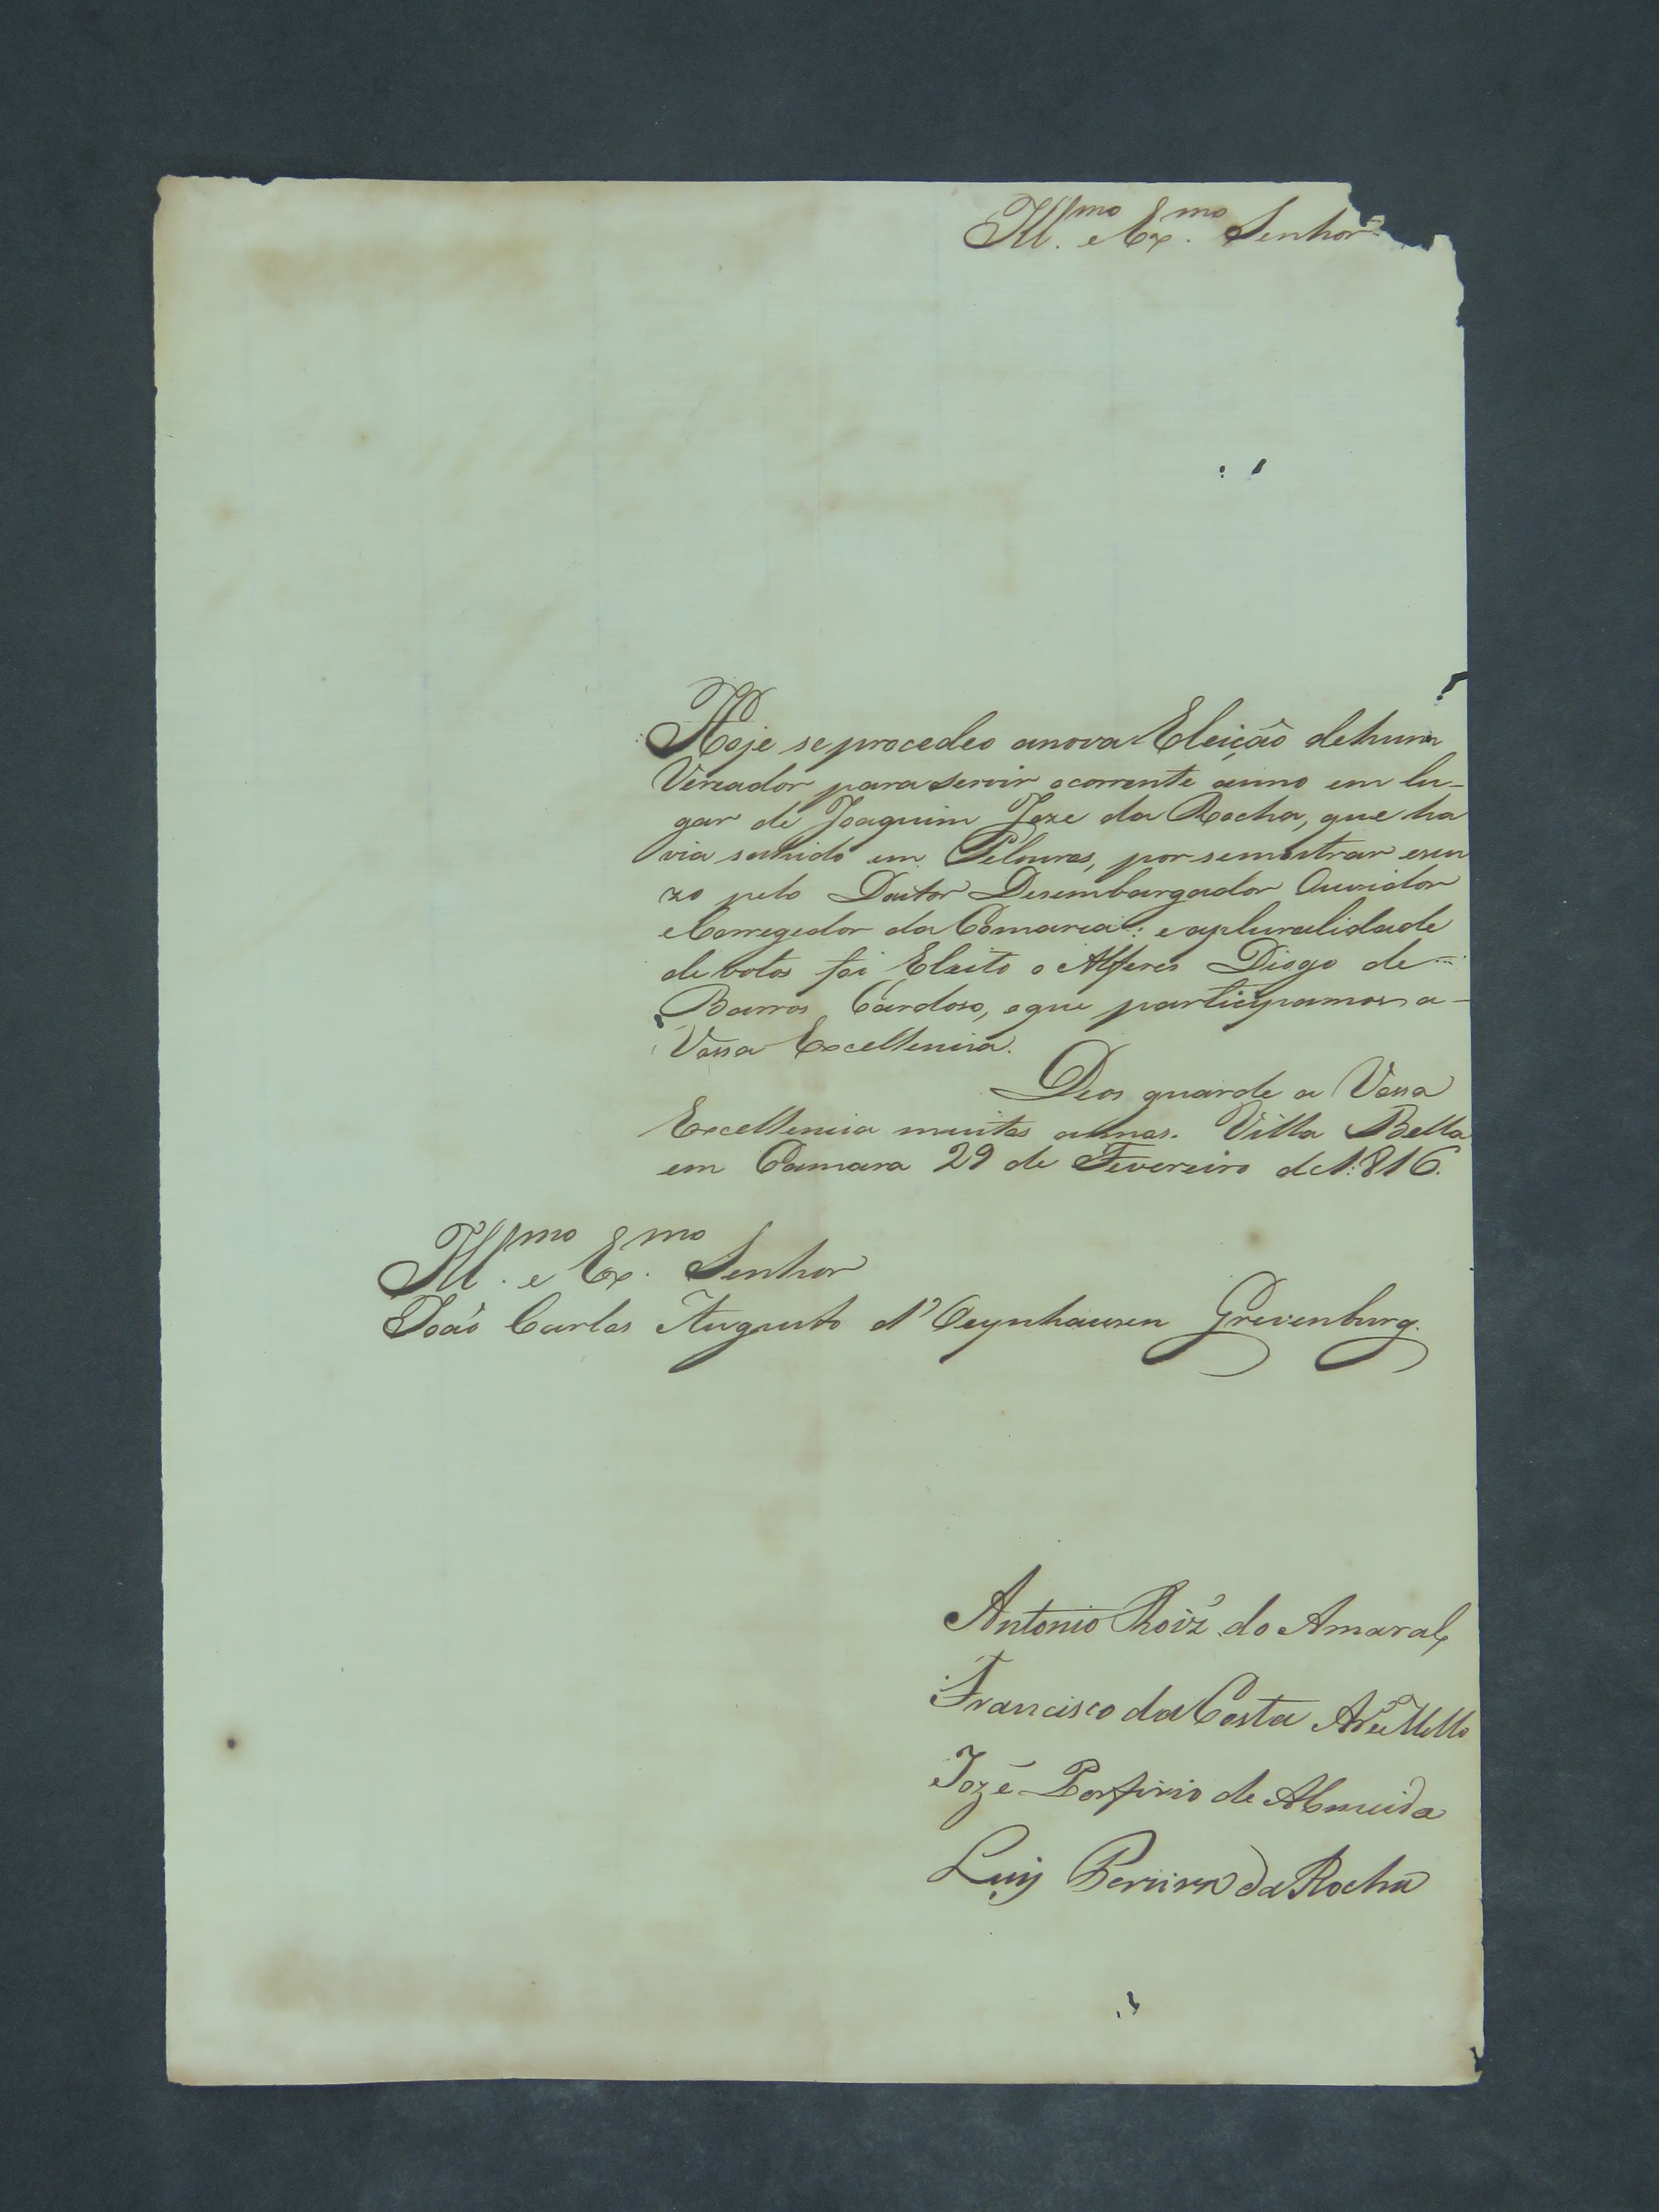 Ill.mo e Ex.mo Senhor
Hoje se procedeo anova Eleição dehum
Vereador para servir o corrente anno em lu-
gar de Joaquim Joze da Rocha, que ha
via sahido em Pelouros, por semostrar escu
zo pelo Doutor Desembargador Ouvidor
eCorregedor da Comarca: e apluralidade
de votos foi Eleito o Alferes Diogo de
Barros Cardoso, o que participamos a-
Vossa Excellencia.
Deos guarde a Vossa
Excellencia muitos annos. Villa Bella
em Camara 29 de Fevereiro de 1:816.
Ill.mo e Ex.mo Senhor
João Carlos Augusto d'Oeynhausen Grevenburg.
Antonio Roiz' do Amaral,
Francisco da Costa Mello
Jozé Porfirio de Almeida
Luis Pereira da Rocha